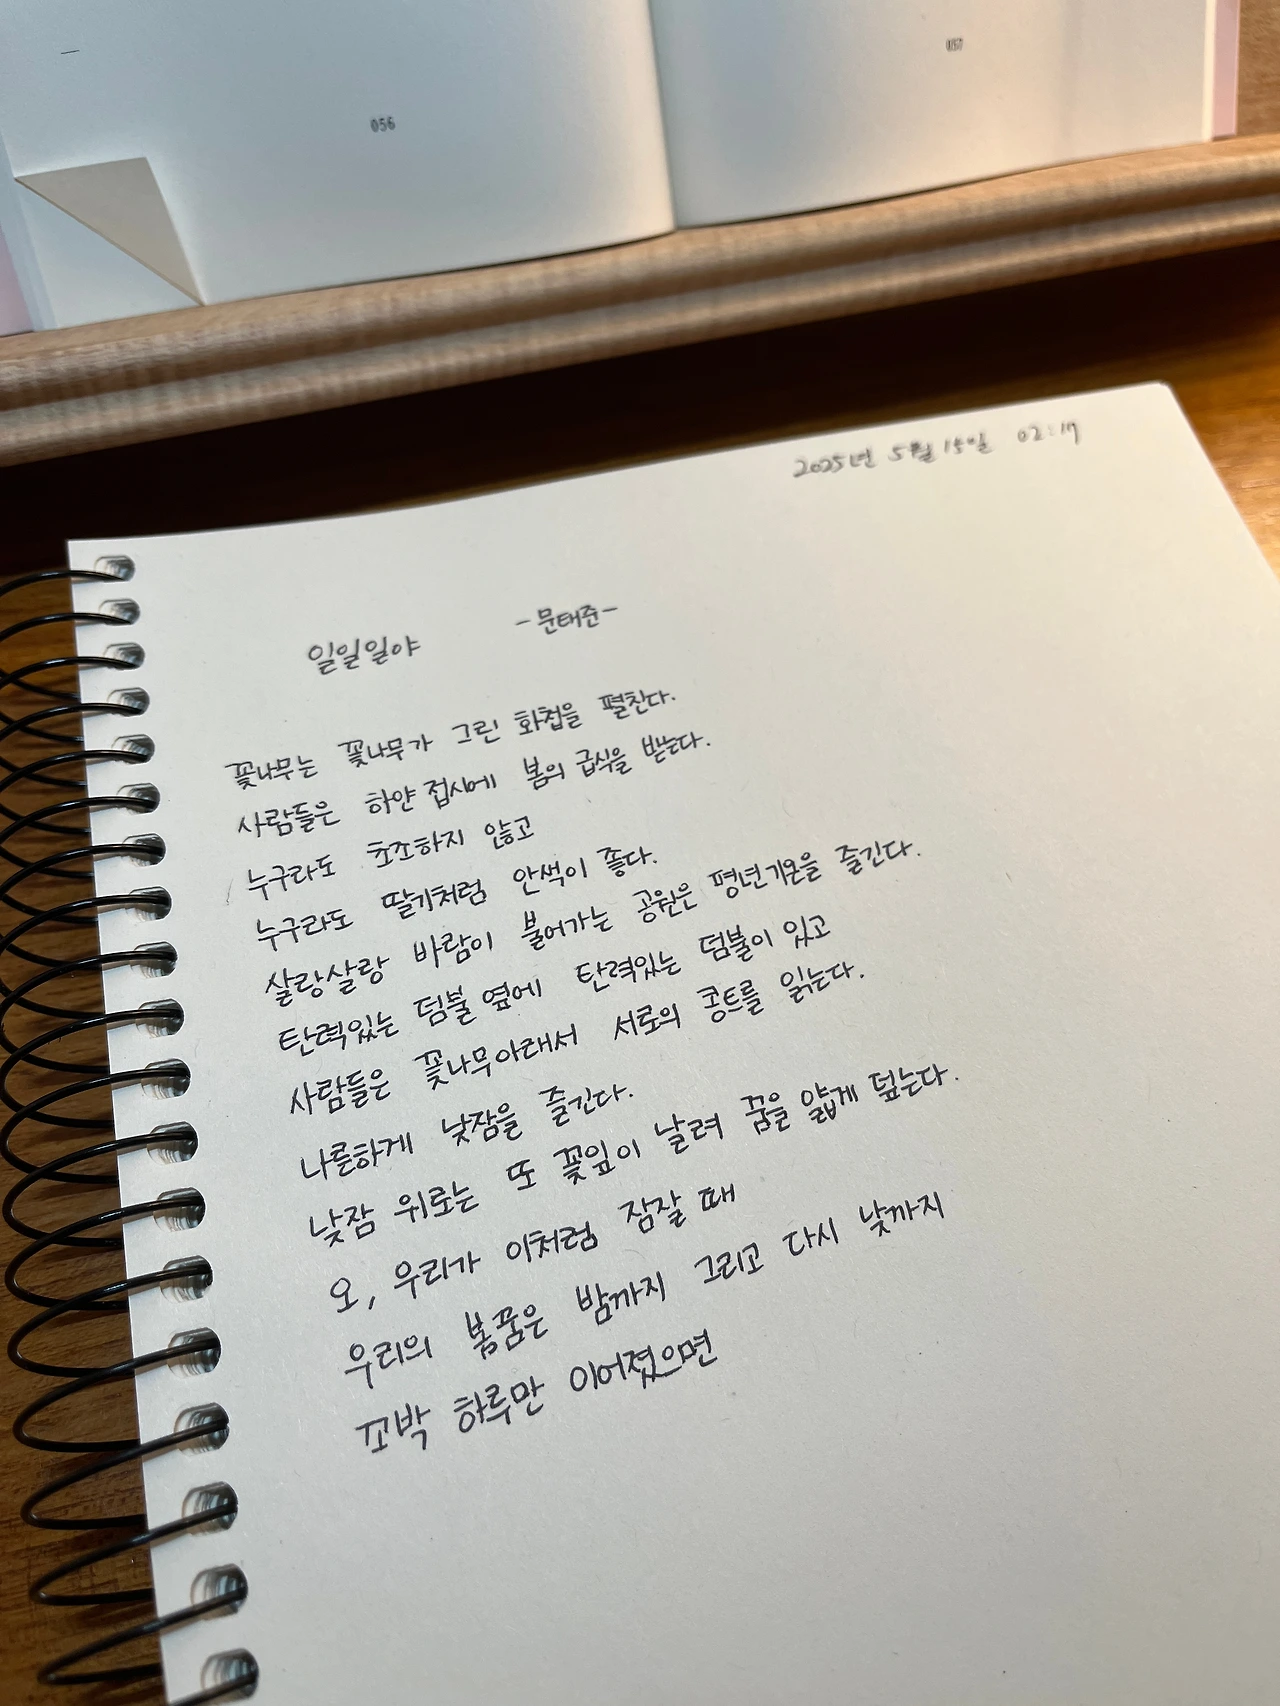 056
057
2025년 5월 15일 02:17
일일일야 -문태준-
꽃나무는 꽃나무가 그린 화첩을 펼친다.
사람들은 하얀 접시에 봄의 급식을 받는다.
누구라도 초조하지 않고
누구라도 딸기처럼 안색이 좋다.
살랑살랑 바람이 불어가는 공원은 평년기온을 즐긴다.
탄력있는 덤불 옆에 탄력있는 덤불이 있고
사람들은 꽃나무아래서 서로의 콩트를 읽는다.
나른하게 낮잠을 즐긴다.
낮잠 위로는 또 꽃잎이 날려 꿈을 얇게 덮는다.
오, 우리가 이처럼 잠잘 때
우리의 봄꿈은 밤까지 그리고 다시 낮까지
꼬박 하루만 이어졌으면